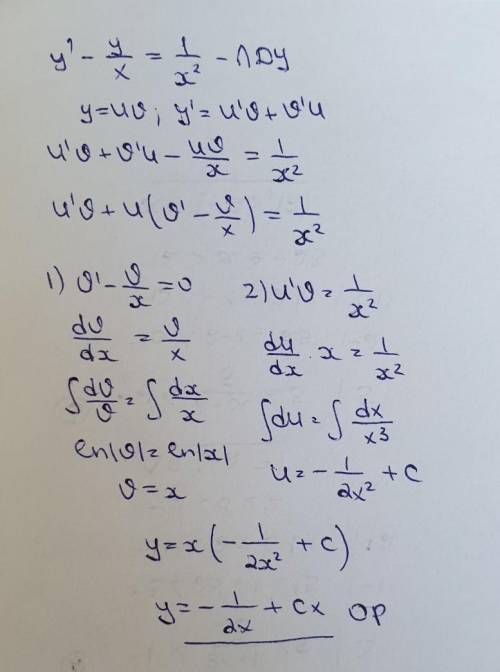 y' - y/x = 1/x² - ЛДУ
y = uϑ; y' = u'ϑ + ϑ'u
u'ϑ + ϑ'u - uϑ/x = 1/x²
u'ϑ + u(ϑ' - ϑ/x) = 1/x²
1) ϑ' - ϑ/x = 0
dϑ/dx = ϑ/x
∫dϑ/ϑ = ∫dx/x
ln|ϑ| = ln|x|
ϑ = x
2) u'ϑ = 1/x²
du/dx · x = 1/x²
∫du = ∫dx/x³
u = -1/2x² + C
y = x(-1/2x² + C)
y = -1/2x + Cx ОР